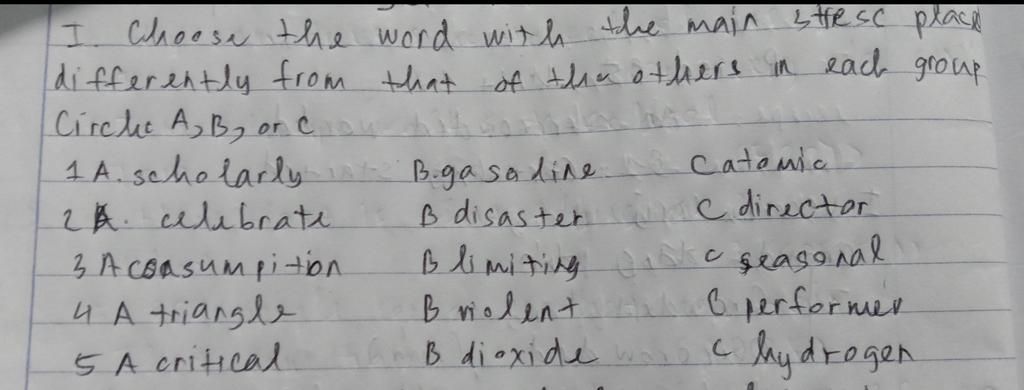 I. Choose the word with the main stresc place
differently from that of the others in each group
Circle A, B, or C
1 A. scholarly B. gasoline C atomic
2 A. celebrate B disaster C director
3 A consumpition B limiting C seasonal
4 A triangle B violent C performer
5 A critical B dioxide C hydrogen